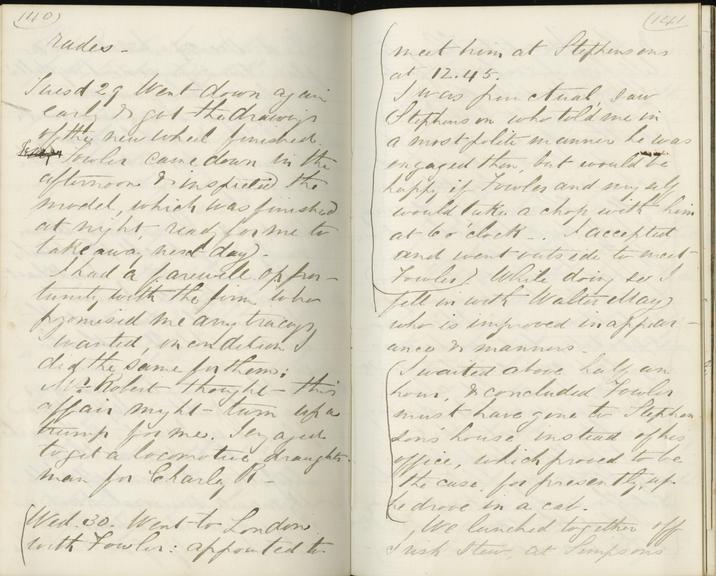 (140)
rades -
Tuesd 29 Went down again
early & got the drawing
of the new wheel finished.
Fowler came down in the
afternoon & inspected the
model, which was finished
at night ready for me to
take away next day.
I had a farewell oppor-
tunity with the firm who
promised me any tracings
I wanted on condition I
did the same for them:
Mr. Robert thought this
affair might turn up a
trump for me. I engaged
to get a locomotive draughts-
man for Charley R -
Wed. 30. Went to London
with Fowler: appointed to
(141)
meet him at Stephensons
at 12.45.
I was punctual, saw
Stephenson who told me in
a most polite manner he was
engaged then, but would be
happy if Fowler and myself
would take a chop with him
at 6 o'clock -. I accepted
and went outside to meet
Fowler. While doing so I
fell in with Walter May
who is improved in appear-
ance & manners.
I waited above half an
hour, & concluded Fowler
must have gone to Stephen
son's house instead of his
office, which proved to be
the case for presently, up
he drove in a cab.
We lunched together off
Irish Stew, at Simpsons